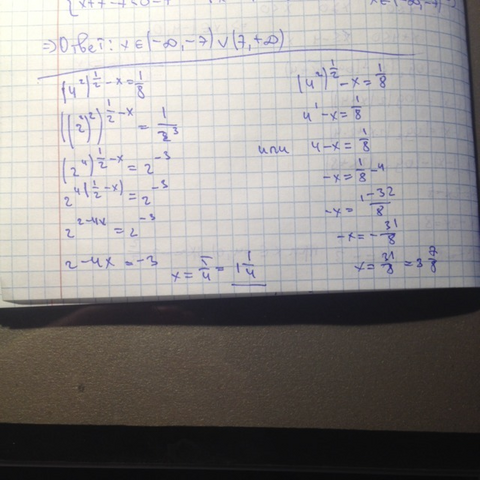 ⇒ Ответ: x ∈ (-∞, -7) ∨ (7, +∞)
(4²)^(1/2 - x) = 1/8
((2²)²)^(1/2 - x) = 1/2³
(2⁴)^(1/2 - x) = 2⁻³
2^(4(1/2 - x)) = 2⁻³
2^(2-4x) = 2⁻³
2-4x = -3
x = 5/4 = 1 1/4
или
(4²)^(1/2) - x = 1/8
4¹ - x = 1/8
4 - x = 1/8
-x = 1/8 - 4
-x = (1-32)/8
-x = -31/8
x = 31/8 = 3 7/8